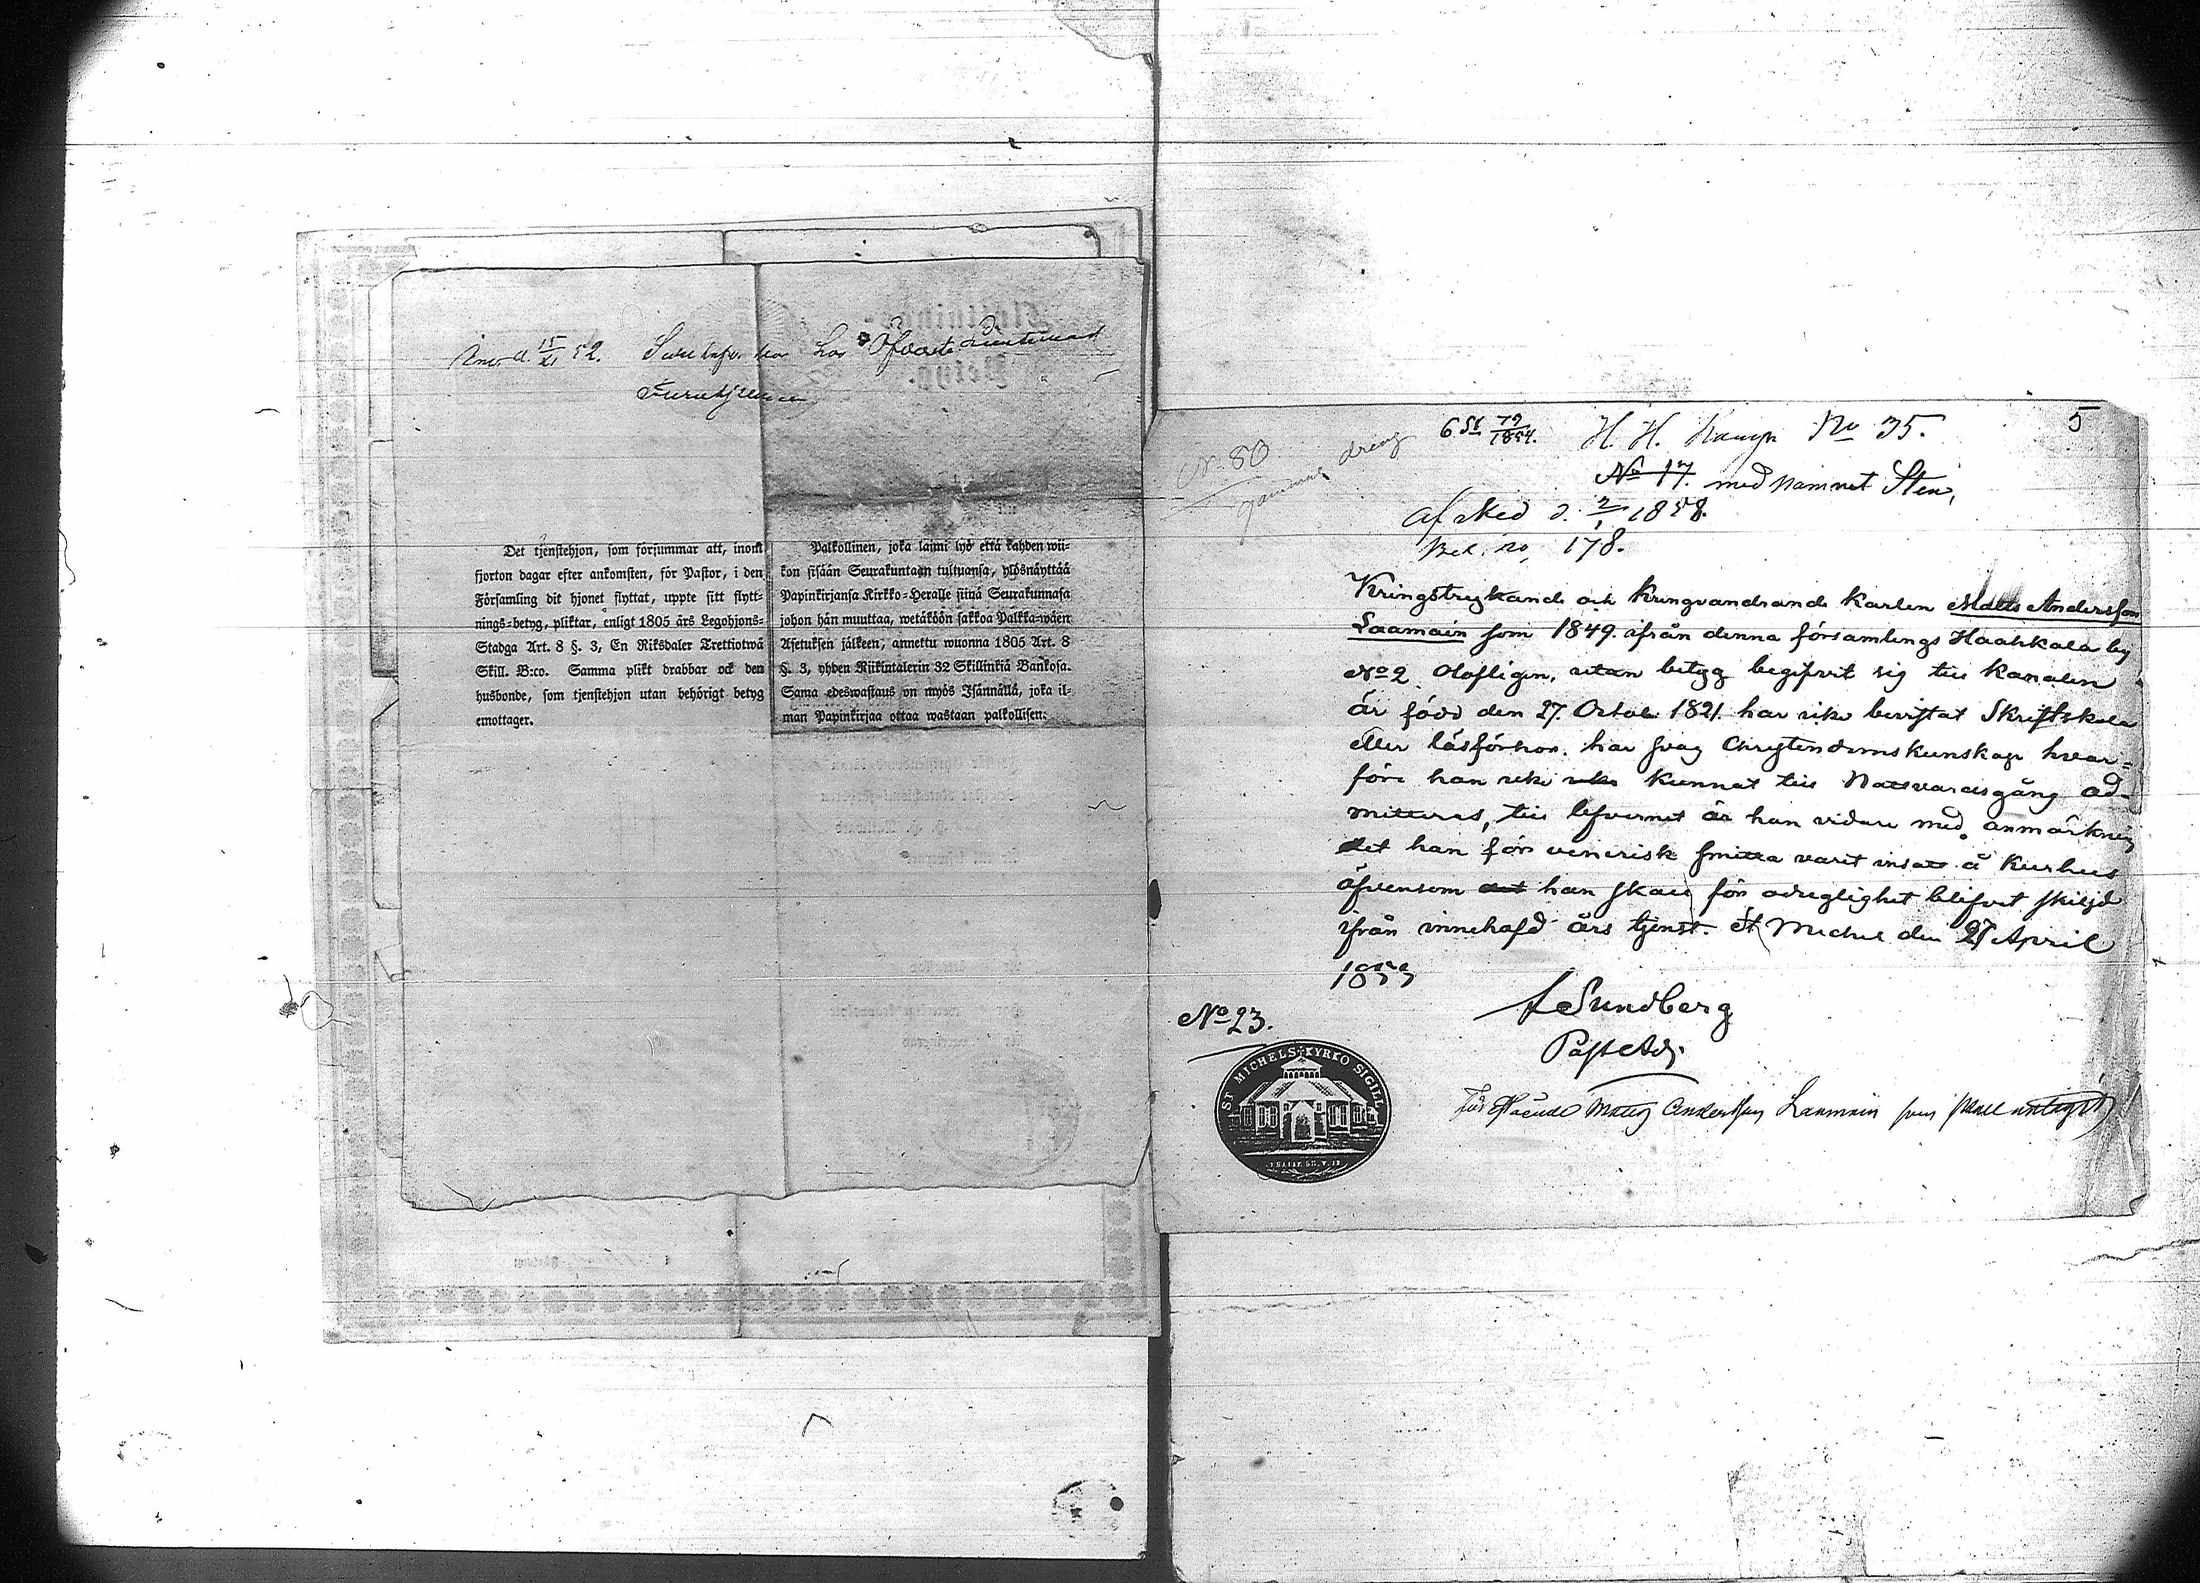 d. 15/XI 52. hos Öfverste Lieutenant
Furuhjelm
Det tjenstehjon, som försummar att, inom
fjorton dagar efter ankomsten, för Pastor, i den
Församling dit hjonet flyttat, uppte sitt flytt-
nings-betyg, pliktar, enligt 1805 års Legohjons-
Stadga Art. 8 §. 3, En Riksdaler Trettiotwå
Skill. B:co. Samma plikt drabbar ock den
husbonde, som tjenstehjon utan behörigt betyg
emottager.
Palkollinen, joka laimi lyö että kahden wii-
kon sisään Seurakuntaan tultuansa, ylösnäyttää
Papinkirjansa Kirkko-Heralle siinä Seurakunnasa
johon hän muuttaa, wetäköön sakkoa Palkka-wäen
Asetuksen jälkeen, annettu wuonna 1805 Art. 8
§. 3, yhden Riikintalerin 32 Skillinkiä Bankosa.
Sama edeswastaus on myös Isännällä, joka il-
man Papinkirjaa ottaa wastaan palkollisen.
5
No 80
dreng
6 St 79/1854. H. H. Kamp No 35.
No 17. med namnet Sten,
Afsked d. 2/1 1858.
Bet. no 178.
Kringstrykande och kringvandrande karlen Matts Andersson
Laamain som 1849. ifrån denna församlings Haahkala by
No 2 Olofligen, utan betyg begifvit sig till Kanalen
är född den 27. Octob. 1821. har icke bevistat Skriftskola
eller läsförhör. har svag Christendomskunskap hvar-
före han icke kunnat till Nattvardsgång ad-
mitteras, till lefvernet är han vidare med anmärkning
det han för venerisk smitta varit insatt å Kurhus
äfvensom han skall för odugelighet blifvit skiljd
ifrån innehafd års tjenst. St Michel den 27 April
1853
No 23.
A Sundberg
Past Adj.
ST MICHELS KYRKO SIGILL
Matts Andersson Laamain som skall antagits